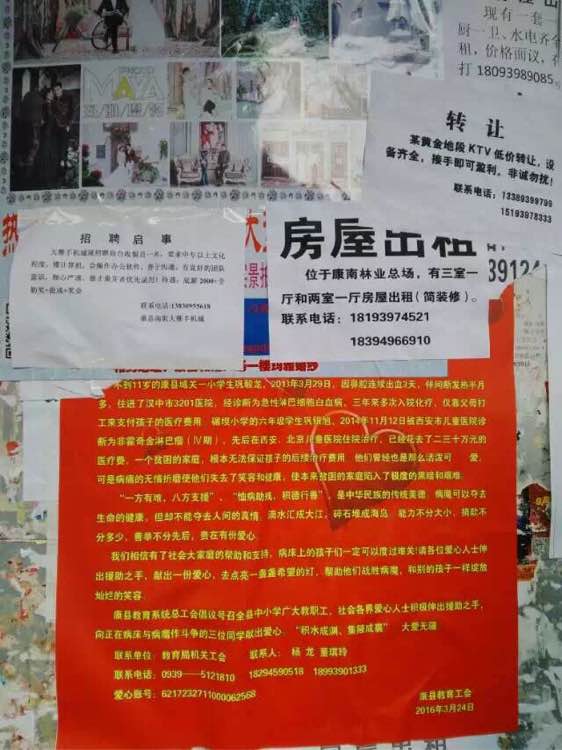 现有一套
厨一卫、水电齐全
租,价格面议,有
打18093989085
PHOTO
MAYA
转 让
某黄金地段KTV低价转让,设
备齐全,接手即可盈利。非诚勿扰!
联系电话:13389399799
15193978333
招聘启事
天雅手机城现招聘前台收银员一名,要求中专以上文化
程度,懂计算机,会操作办公软件,善于沟通,有良好的团队
联系电话:13830955618
康县南街天雅手机城
房屋出租
位于康南林业总场,有三室一
厅和两室一厅房屋出租(简装修)。
联系电话:18193974521
18394966910
39124
不到11岁的康县城关一小学生巩毅龙,2013年3月29日,因鼻腔连续出血3天,伴间断发热半月
多,住进了汉中市3201医院,经诊断为急性淋巴细胞白血病,三年来多次入院化疗,仅靠父母打
工来支付孩子的医疗费用。碾坝小学的六年级学生巩镇旭,2014年11月12日被西安市儿童医院诊
断为非霍奇金淋巴瘤(Ⅳ期),先后在西安、北京儿童医院住院治疗,已经花去了二三十万元的
医疗费,一个贫困的家庭,根本无法保证孩子的后续治疗费用。他们曾经也是那么活泼可 爱,
可是病痛的无情折磨使他们失去了笑容和健康,使本来贫困的家庭陷入了极度的黑暗和艰难。
“一方有难,八方支援”、“恤病助残,积德行善”是中华民族的传统美德,病魔可以夺去
生命的健康,但却不能夺去人间的真情,滴水汇成大江,碎石堆成海岛。能力不分大小,捐款不
分多少,善举不分先后,贵在有份爱心。
我们相信有了社会大家庭的帮助和支持,病床上的孩子们一定可以度过难关!请各位爱心人士伸
出援助之手,献出一份爱心,去点亮一盏盏希望的灯,帮助他们战胜病魔,和别的孩子一样绽放
灿烂的笑容。
康县教育系统总工会倡议号召全县中小学广大教职工、社会各界爱心人士积极伸出援助之手,
向正在病床与病魔作斗争的三位同学献出爱心。“积水成渊、集腋成裘” 大爱无疆
联系单位:教育局机关工会 联系人:杨 龙 董琪玲
联系电话:0939——5121810 18294590518 18993901333
爱心账号:6217232711000062568
康县教育工会
2016年3月24日